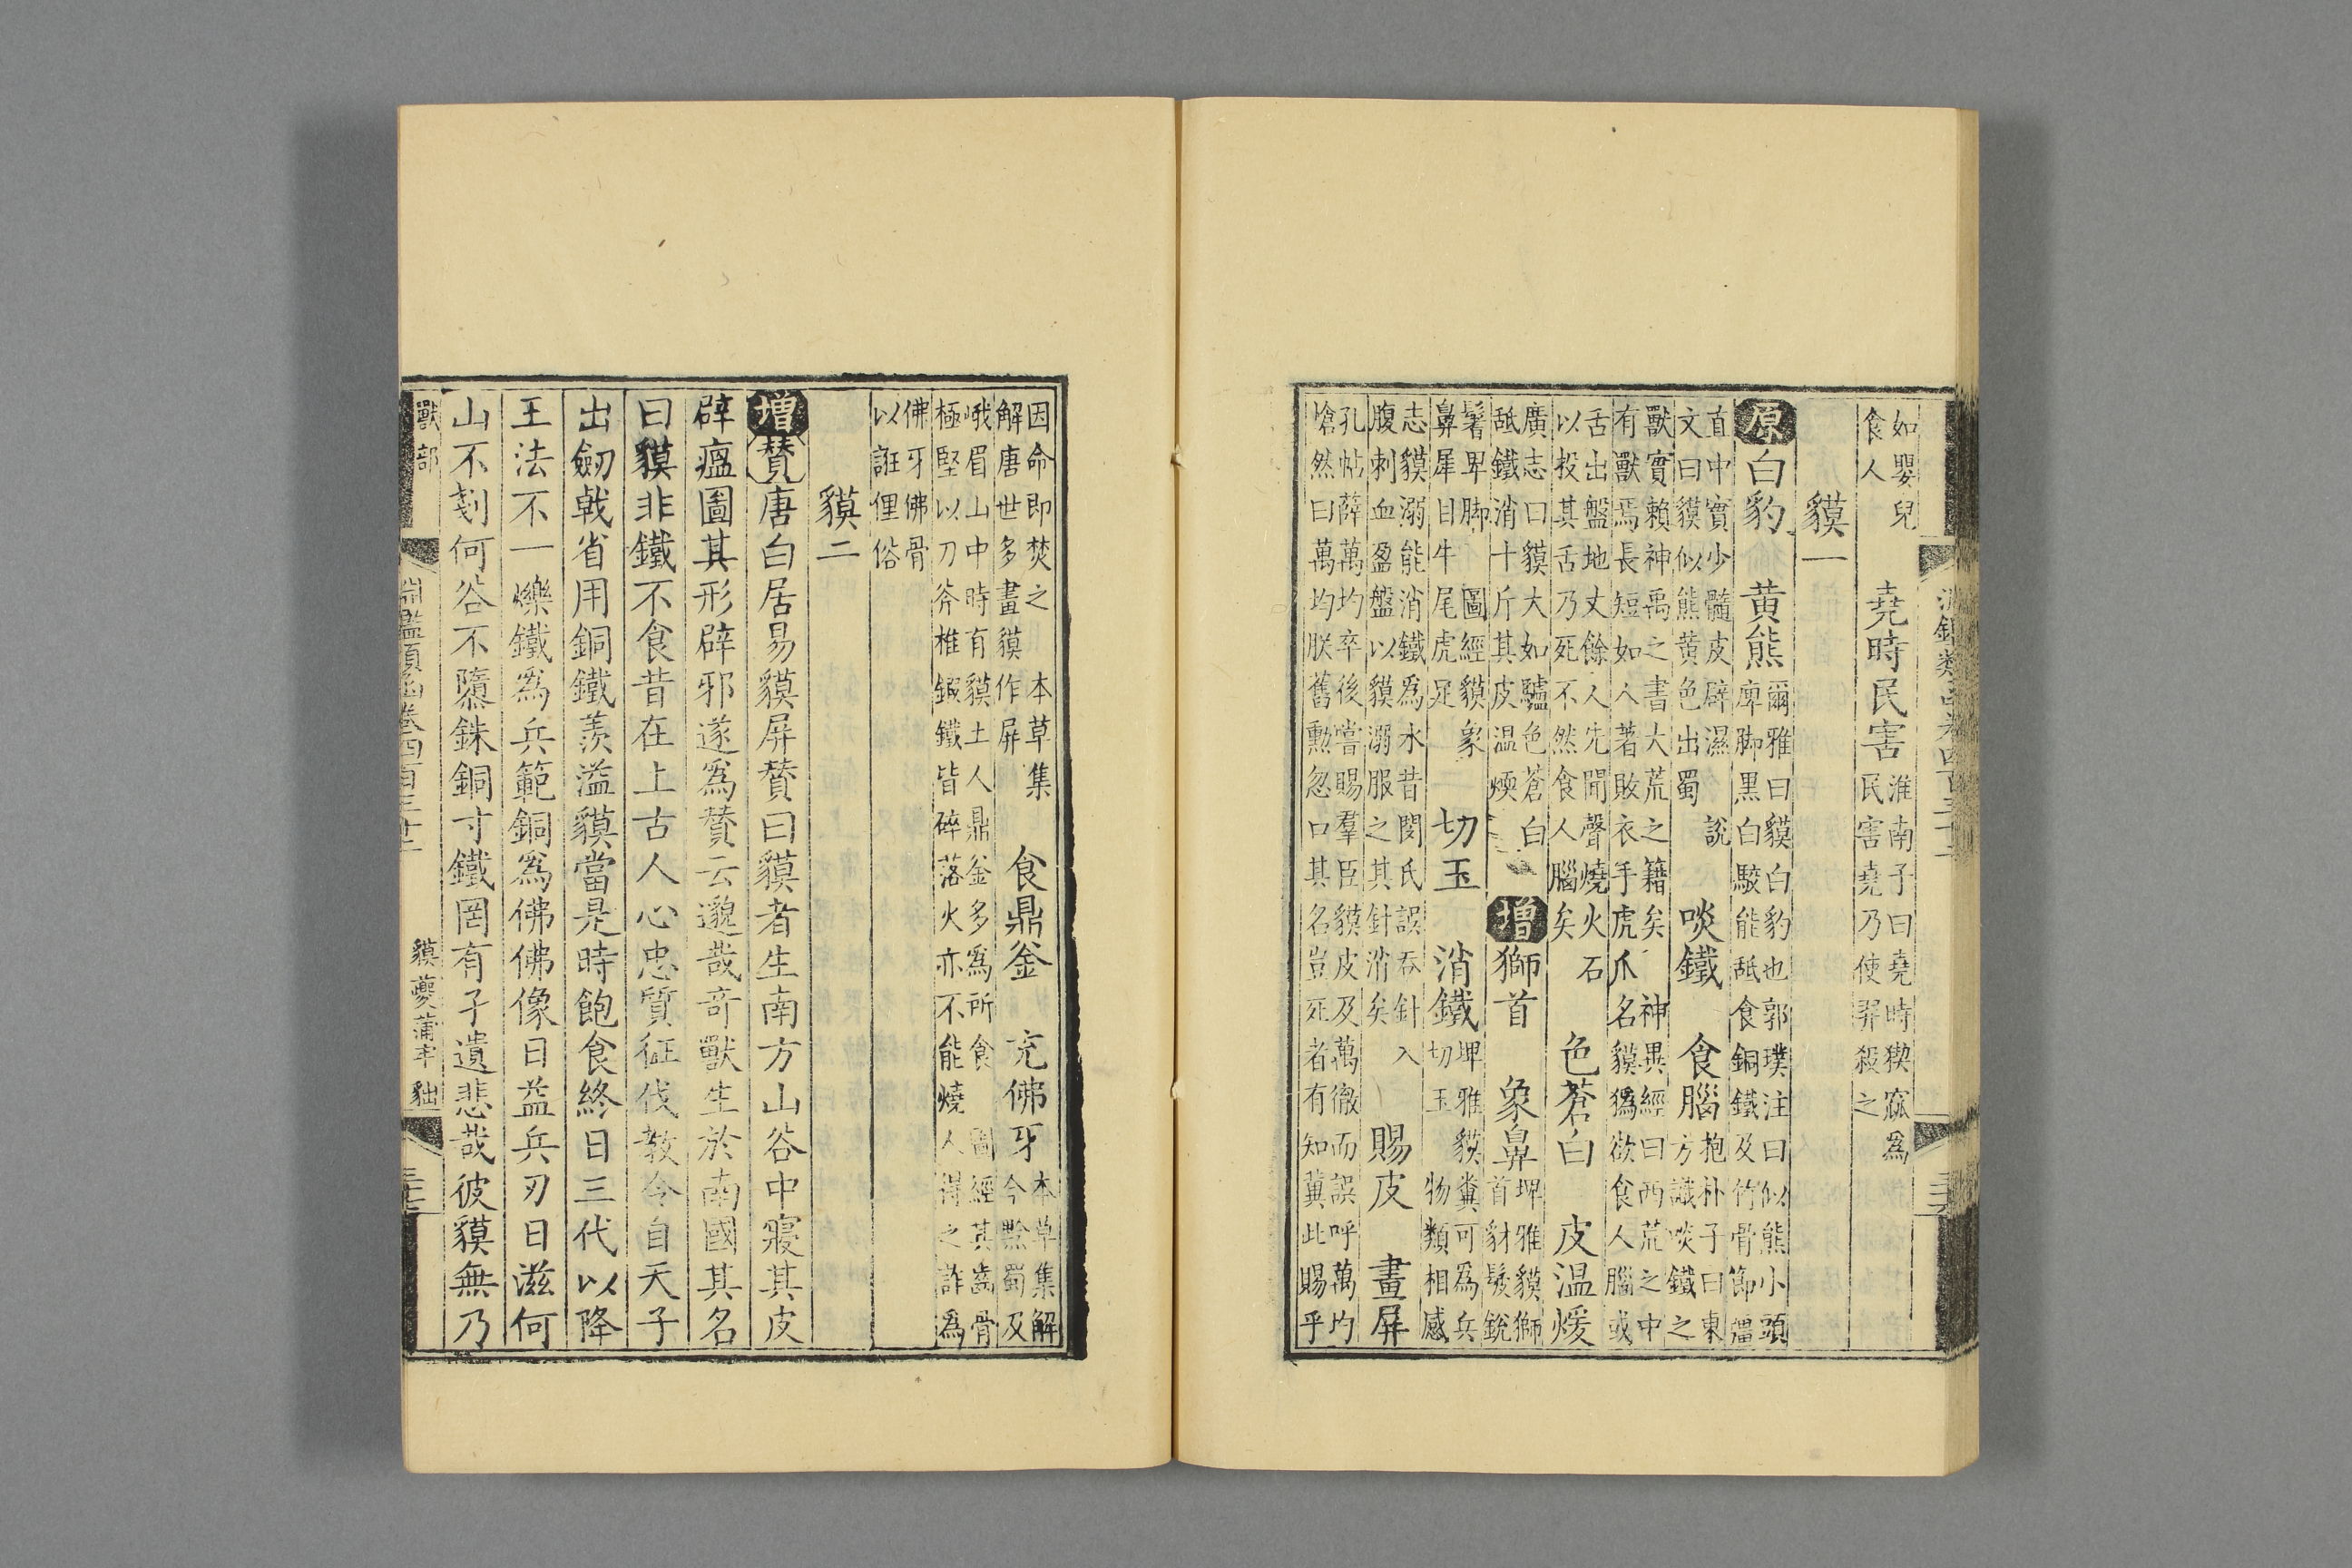 淵鑑類函卷四百三十二
如嬰兒食人 堯時民害 淮南子曰堯時猰㺄爲民害堯乃使羿殺之
貘一
原白豹 黄熊 爾雅曰貘白豹也郭璞注曰似熊小頭庳脚黑白駮能舐食銅鐵及竹骨節彊
直中實少髓皮辟濕 說文曰貘似熊黄色出蜀 啖鐵 食腦 抱朴子曰東方識啖鐵之
獸實賴神禹之書大荒之籍矣 神異經曰西荒之中有獸焉長短如人著敗衣手虎爪名貘㺔欲食人腦或
舌出盤地丈餘人先聞聲燒火石以投其舌乃死不然食人腦矣 色蒼白 皮温煖
廣志曰貘大如驢色蒼白舐鐵消十斤其皮温煗 增獅首 象鼻 埤雅貘獅首豺髮銳
鬐卑脚 圖經貘象鼻犀目牛尾虎足 切玉 消鐵 埤雅貘糞可爲兵切玉 物類相感
志貘溺能消鐵爲水昔閔氏誤吞針入腹刺血盈盤以貘溺服之其針消矣 賜皮 畫屏
孔帖薛萬均卒後嘗賜羣臣貘皮及萬徹而誤呼萬均愴然曰萬均朕舊勲忽口其名豈死者有知冀此賜乎
因命即焚之 本草集解唐世多畫貘作屏 食鼎釜 充佛牙 本草集解今黔蜀及
峨眉山中時有貘土人鼎釜多爲所食 圖經其齒骨極堅以刀斧椎鍜鐵皆碎落火亦不能燒人得之詐爲
佛牙佛骨以誑俚俗
貘二
增贊唐白居易貘屏贊曰貘者生南方山谷中寢其皮
辟瘟圖其形辟邪遂爲贊云邈哉奇獸生於南國其名
曰貘非鐵不食昔在上古人心忠質征伐教令自天子
出劒戟省用銅鐵羨溢貘當是時飽食終日三代以降
王法不一爍鐵爲兵範銅爲佛佛像日益兵刃日滋何
山不剗何谷不隳銖銅寸鐵罔有孑遺悲哉彼貘無乃
獸部 淵鑑類函卷四百三十二 貘 䕫 蒲牢 貀